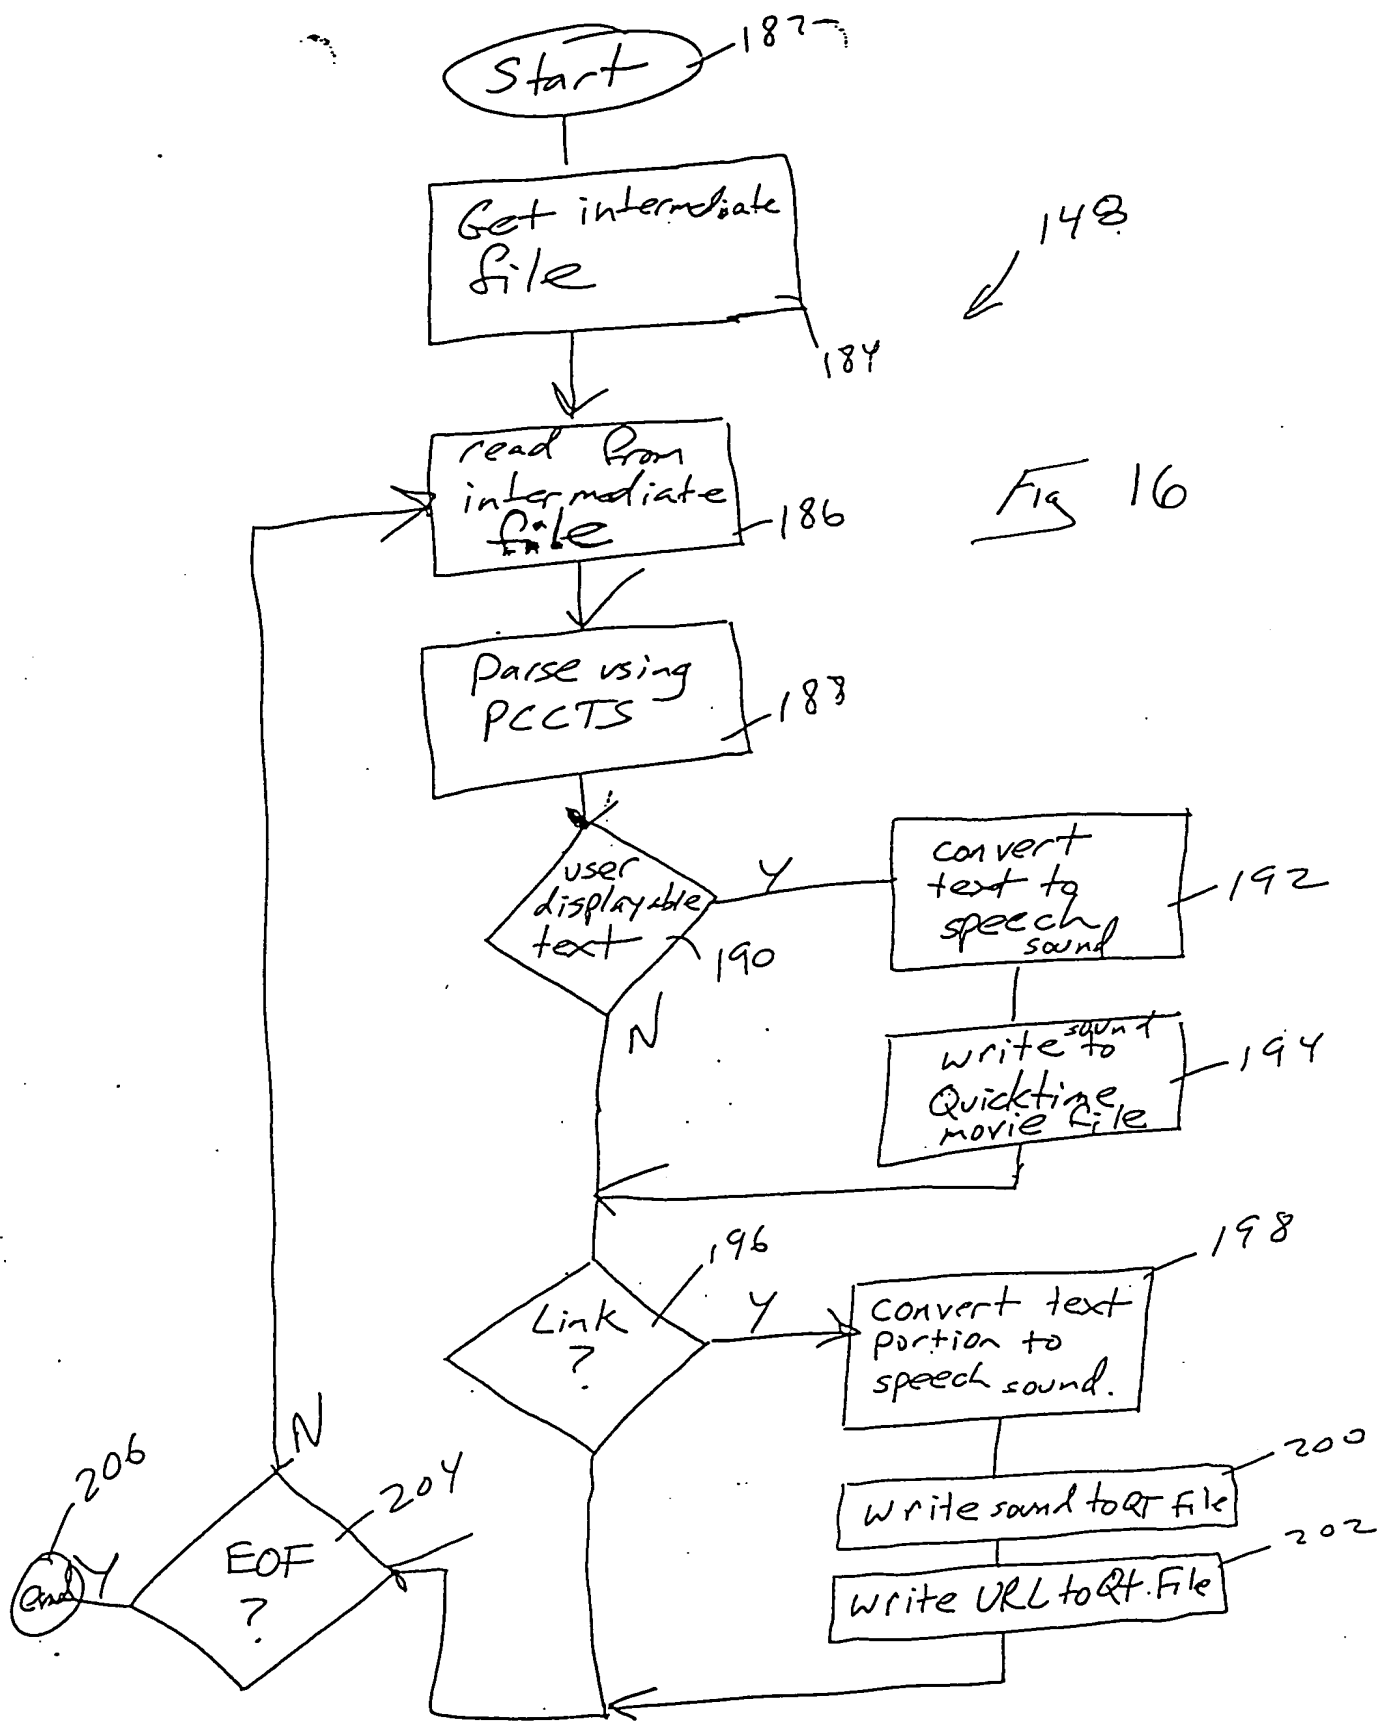 Start
182
Get intermediate
file
184
148
read from
intermediate
file
186
Fig 16
Parse using
PCCTS
188
user
displayable
text
190
Y
N
convert
text to
speech
sound
192
write sound to
Quicktime
movie file
194
Link
?
196
Y
convert text
portion to
speech sound.
198
write sound to QT File
200
write URL to Qt. File
202
N
EOF
?
204
Y
end
206